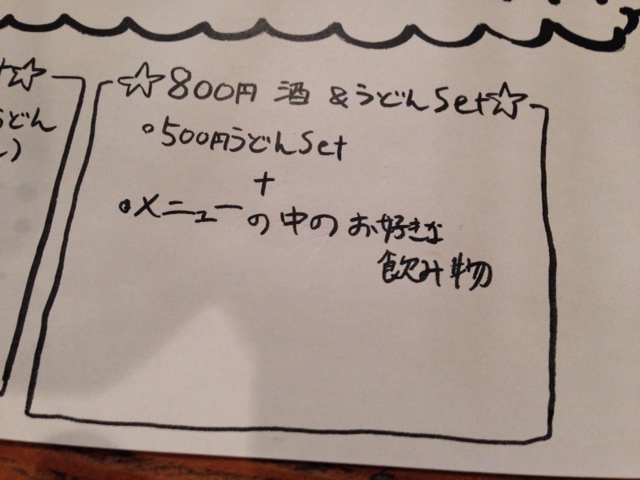 ☆800円 酒 &うどんSet☆
°500円うどんSet
+
•メニューの中のお好きな
飲み物
うどん